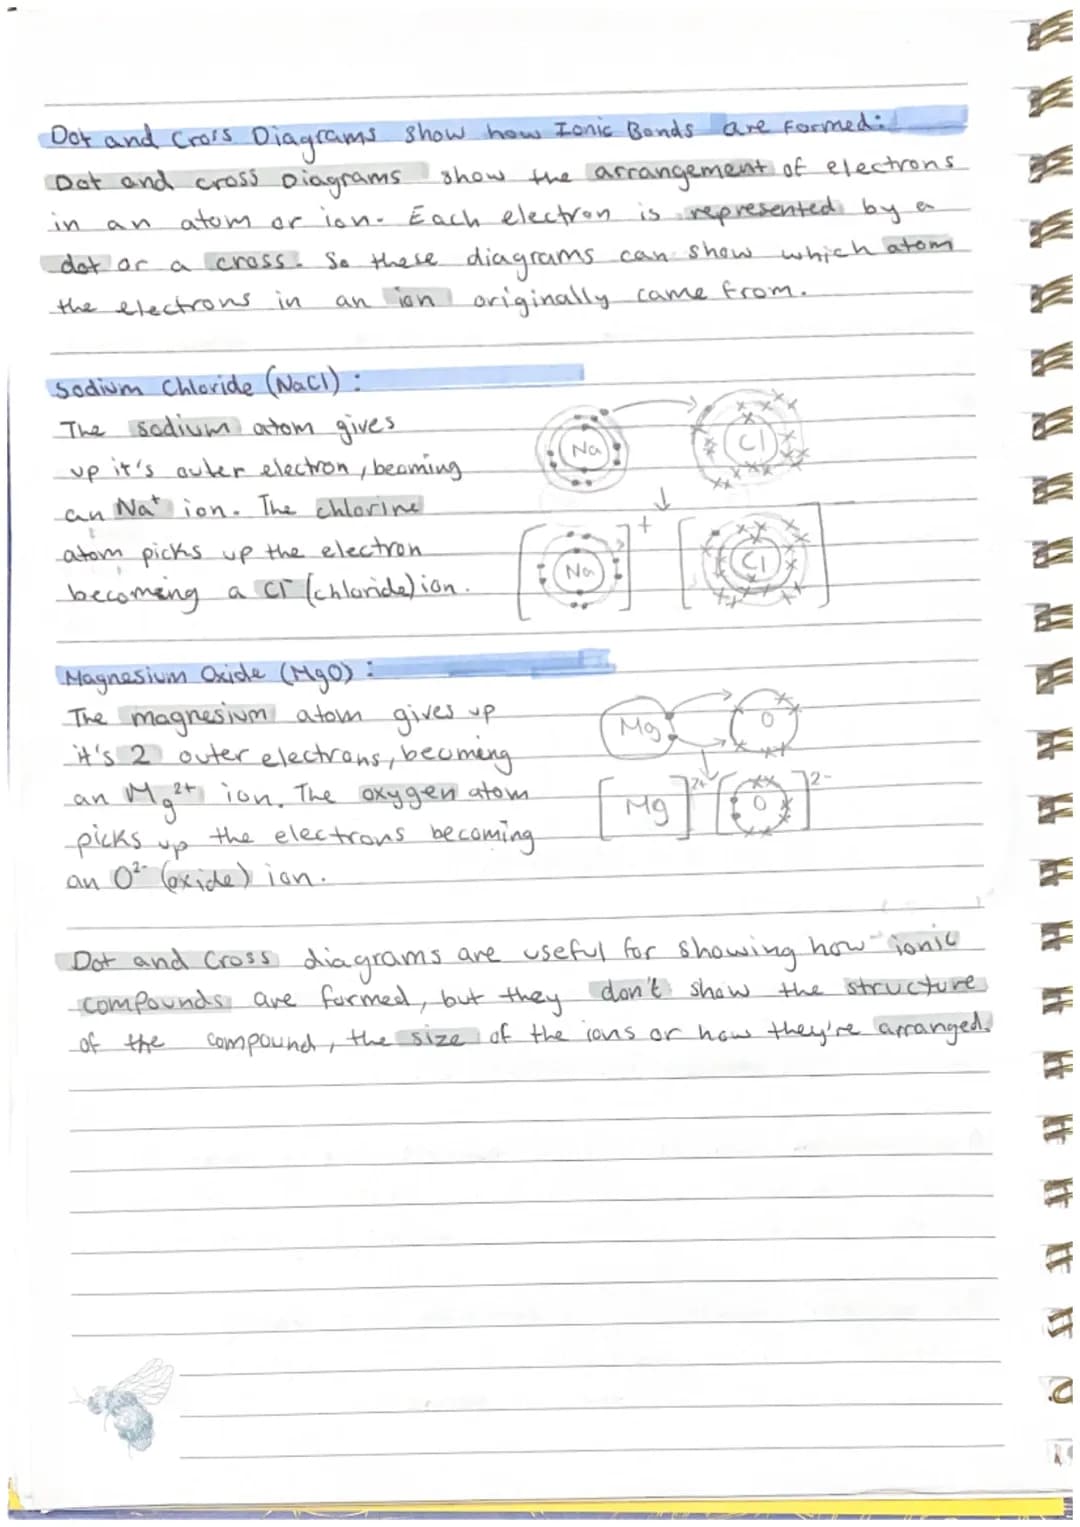 Dot and Cross Diagrams show how Ionic Bonds are Formed:
Dot and cross Diagrams show the arrangement of electrons
in an atom or ion. Each electron is represented by a
dot or a cross. So these diagrams can show which atom
the electrons in an ion originally came from.
Sodium Chloride (NaCl) :
The sodium atom gives
up it's outer electron, beoming
an Na⁺ ion. The chlorine
atom picks up the electron
becoming a Cl⁻ (chloride) ion.
Na Cl
Na + Cl
Magnesium Oxide (MgO) :
The magnesium atom gives up
it's 2 outer electrons, becoming
an Mg²⁺ ion. The oxygen atom
picks up the electrons becoming
an O²⁻ (oxide) ion.
Mg O
Mg 2+ O 2-
Dot and Cross diagrams are useful for showing how ionic
compounds are formed, but they don't show the structure
of the compound, the size of the ions or how they're arranged.